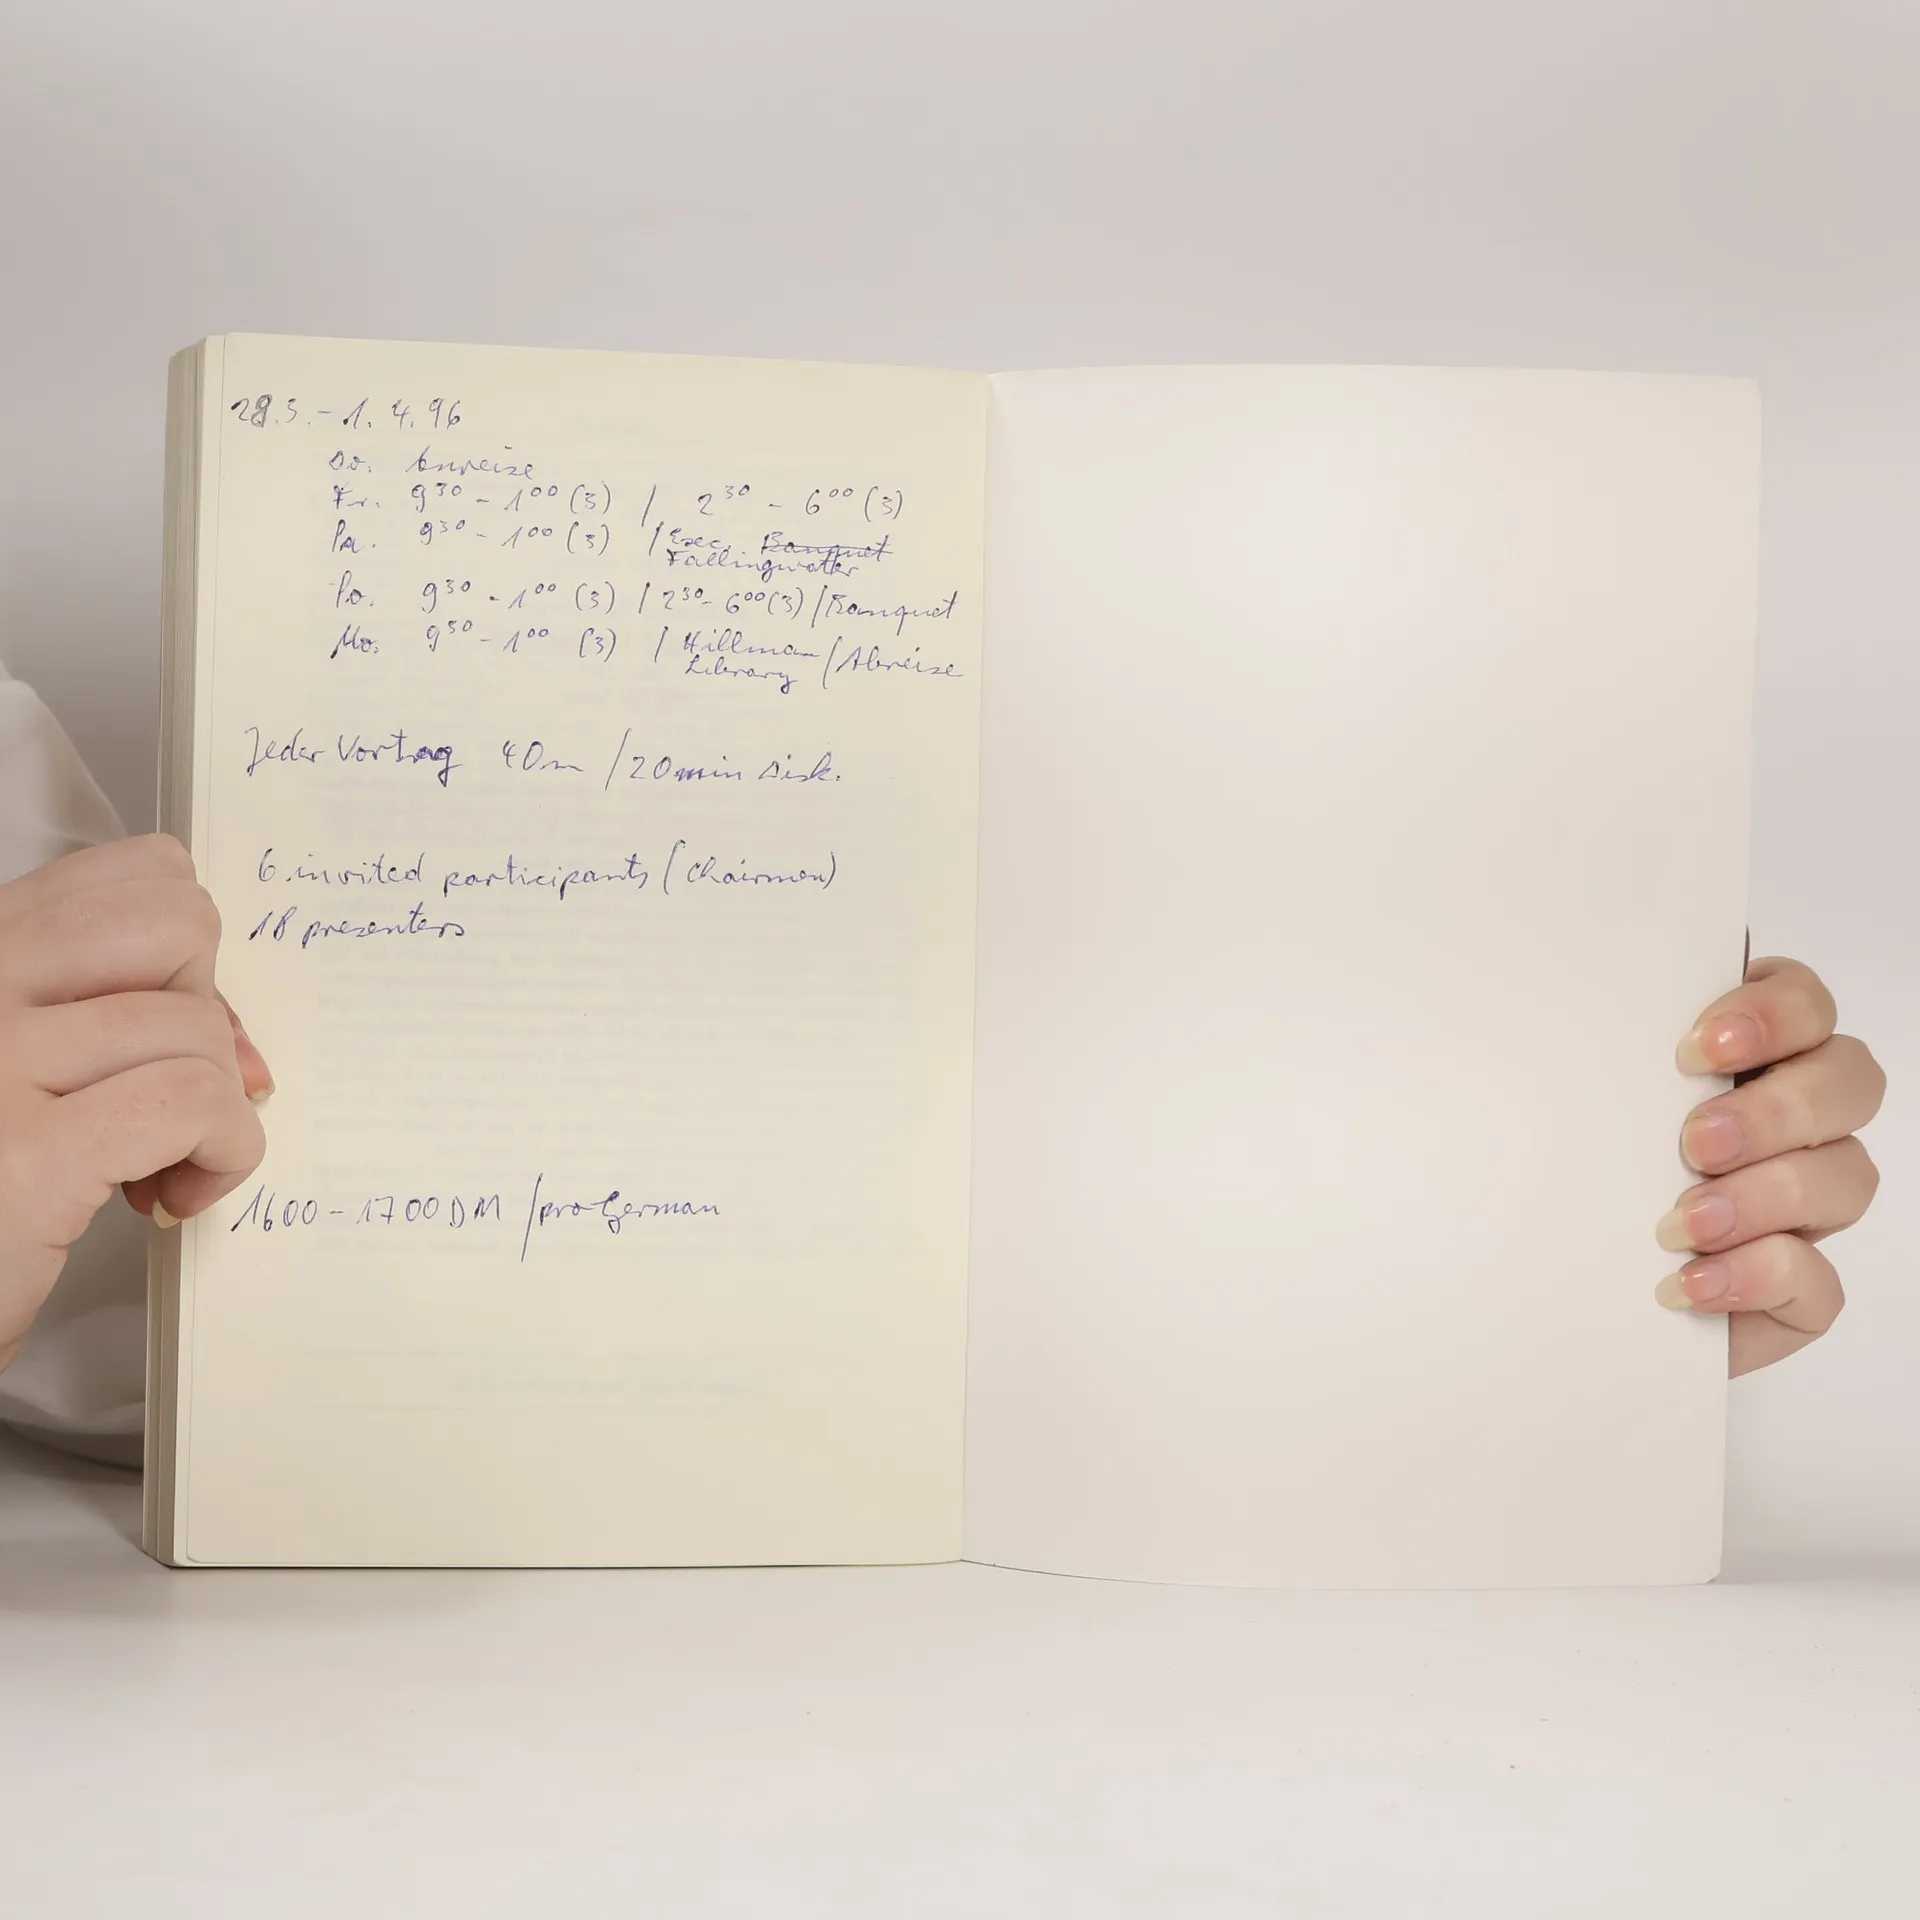 28.3. - 1. 4. 96
Do. Anreise
Fr. 9³⁰ - 1⁰⁰ (3) / 2³⁰ - 6⁰⁰ (3)
Sa. 9³⁰ - 1⁰⁰ (3) / Exc. Banquet
Fallingwater
So. 9³⁰ - 1⁰⁰ (3) / 2³⁰ - 6⁰⁰ (3) / Banquet
Mo. 9³⁰ - 1⁰⁰ (3) / Hillman / Abreise
Library
Jeder Vortrag 40m / 20min Disk.
6 invited participants (Chairmen)
18 presenters
1600 - 1700 DM / pro German